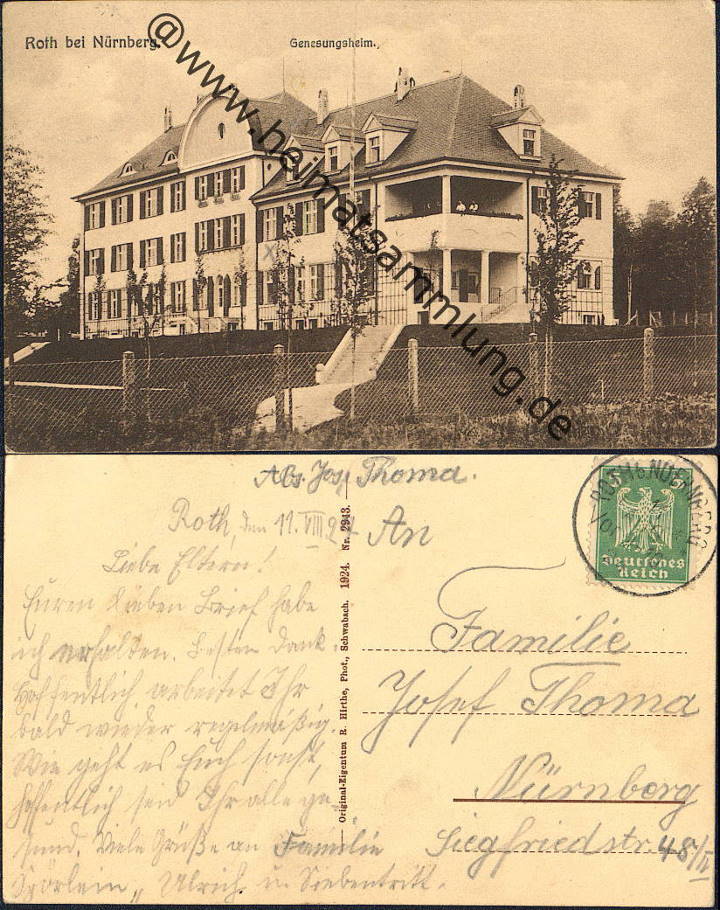 Roth bei Nürnberg.
Genesungsheim.
@www.heimatsammlung.de
Abs. Jos. Thoma.
Roth, den 11. VIII 27
Liebe Eltern!
Euren lieben Brief habe
ich erhalten. Besten Dank.
Hoffentlich arbeitet Ihr
bald wieder regelmäßig.
Wie geht es Euch sonst,
hoffentlich seid Ihr alle ge-
sund. Viele Grüße an Familie
Spörlein, Ulrich u.
Original-Eigentum R. Hirthe, Phot., Schwabach. 1924. Nr. 2943.
An
Familie
Josef Thoma
Nürnberg
Siegfriedstr. 48/II
ROTH b. NUERNBERG
5 5
Deutsches
Reich